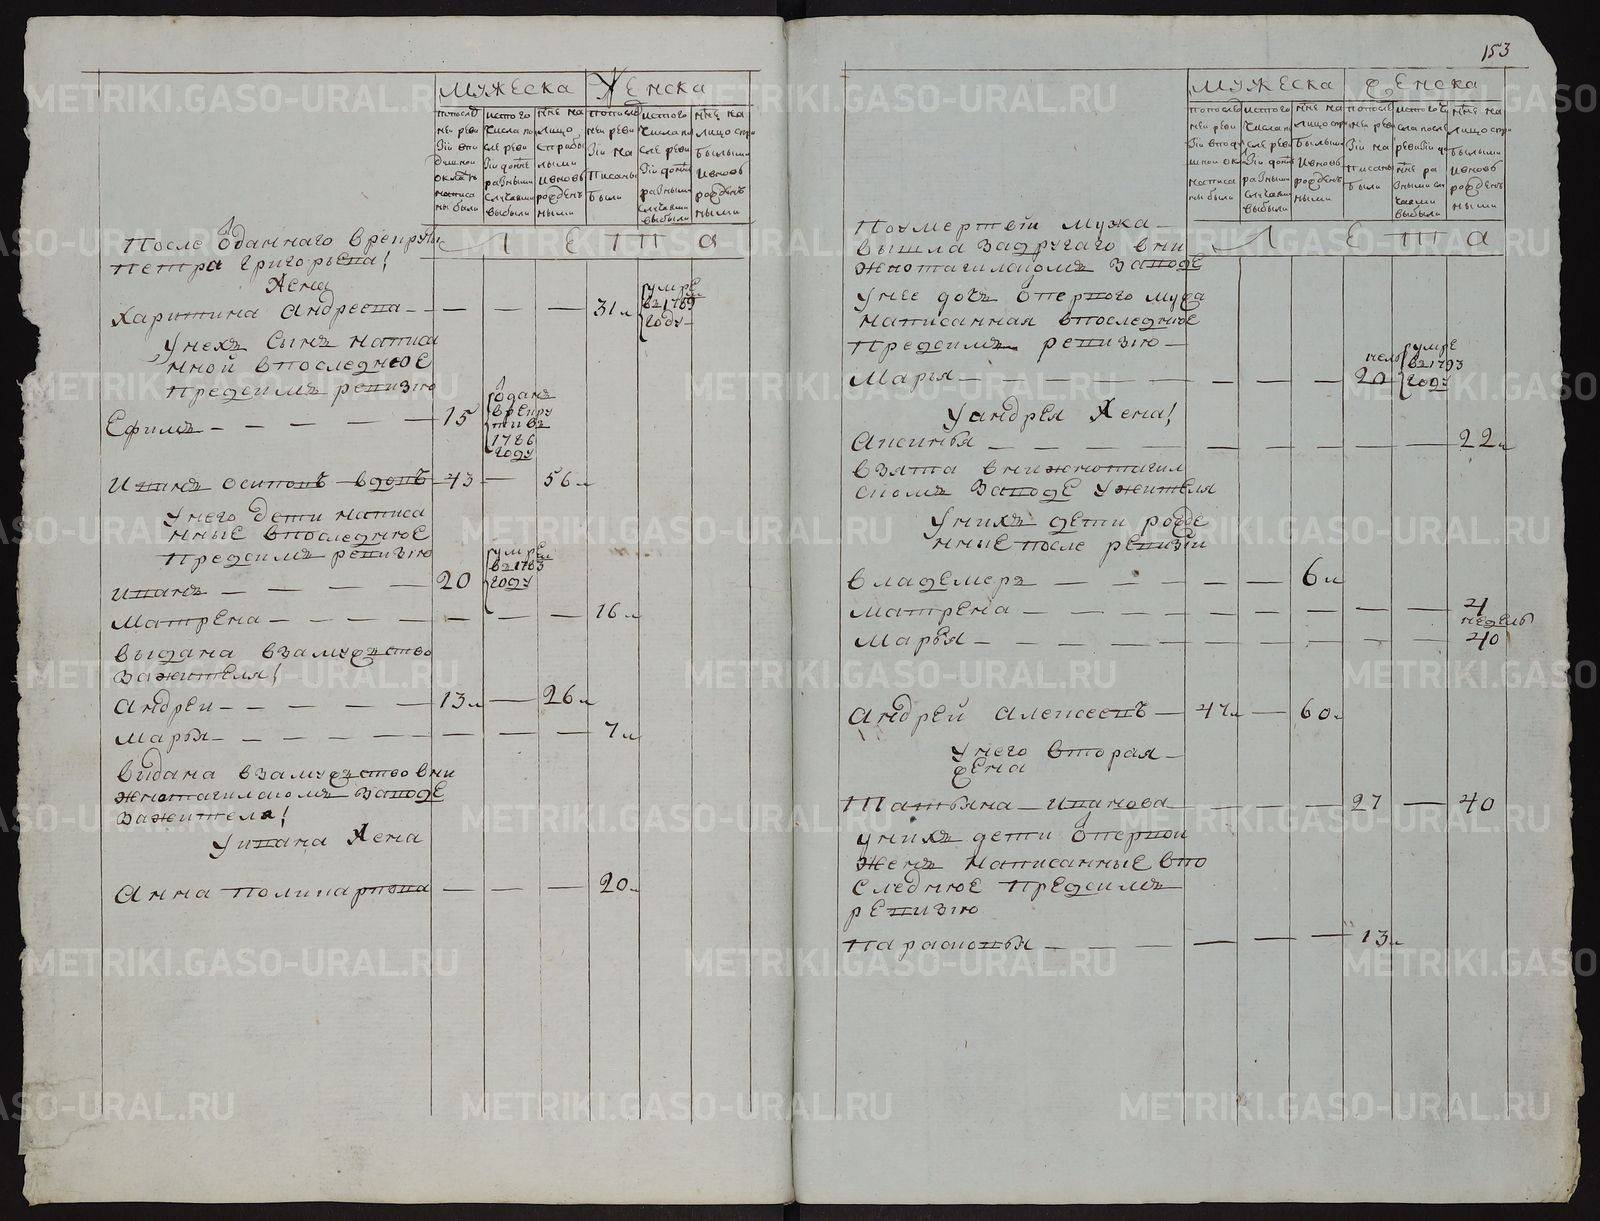 153
мужеска женска
попослѣд ней реви зіи впо душном окладѣ написа ны были
истого числа по сле реви зіи донне разными случаями выбыли
нне на лицо спрыбы лыми ивновь рожден ными
попослед ней реви зіи на писаны были
истого числа по сле реви зіи донне разными случаями выбыли
нне на лицо спри былыми ивновь рожден ными
Лета
После Отданнаго врекруты
петра григорьева!
Жена
Харитина андреева 31 л умре в 1789 году
Унехъ сынъ написа
нной впоследнюю
предсимъ ревизию
Ефимъ 15 Отданъ врекру ты въ 1786 году
Иванъ осиповъ вдовъ 43 56 л
Унего дети написа
нные впоследнюю
предсимъ ревизию
иванъ 20 умре в 1783 году
матрена 16 л
выдана взамужство
зажителя!
андреи 13 л 26 л
марья 7 л
видана взамужство вни
жнотагилскомъ заводе
зажителя!
Уивана Жена
анна поликарпова 20 л
мужеска женска
попослед ней реви зіи вподу шной окла написа ны были
истого числа по сле реви зіи донне разными случаями выбыли
нне на лицо спри былыми ивновь рожден ными
попослед ней реви зіи на писаны были
истого чи сла после ревизіи до нне ра зными слу чаями выбыли
нне на лицо спри былыми ивновь рожден ными
Лета
Поумертвій мужа
вышла задругаго вни
жнотагилскомъ заводе
Унее дочь Оперного мужа
написанная впоследнюю
предсимъ ревизию
марья недель 20 умре в 1793 году
Уандрея Жена!
аксинья 22 л
взята внижнотагил
скомъ заводе ужителя
Унихъ дети рожде
нные после ревизіи
владемеръ 6 л
матрена 4
марья недель 40
андрей алексеевъ 47 л 60 л
Унего вторая
жена
Татьяна иванова 27 40
унихъ дети Оперной
жены написанные впо
следнюю предсимъ
ревизию
парасковья 13 л
METRIKI.GASO-URAL.RU